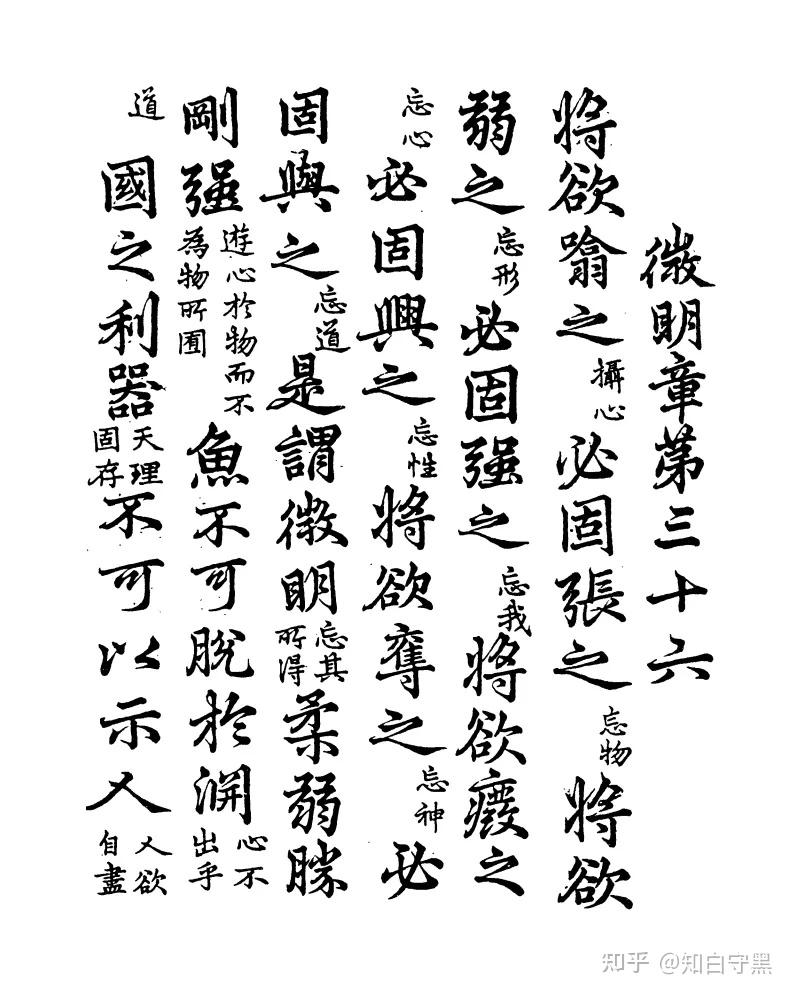 微明章第三十六
將欲噏之攝心必固張之忘物將欲
弱之忘形必固强之忘我將欲癈之
忘心必固興之忘性將欲奪之忘神必
固與之忘道是謂微明忘其所得柔弱勝
剛强遊心於物而不為物所囿魚不可脫於淵心不出乎
道國之利器天理固存不可以示人人欲自盡
知乎 @知白守黑